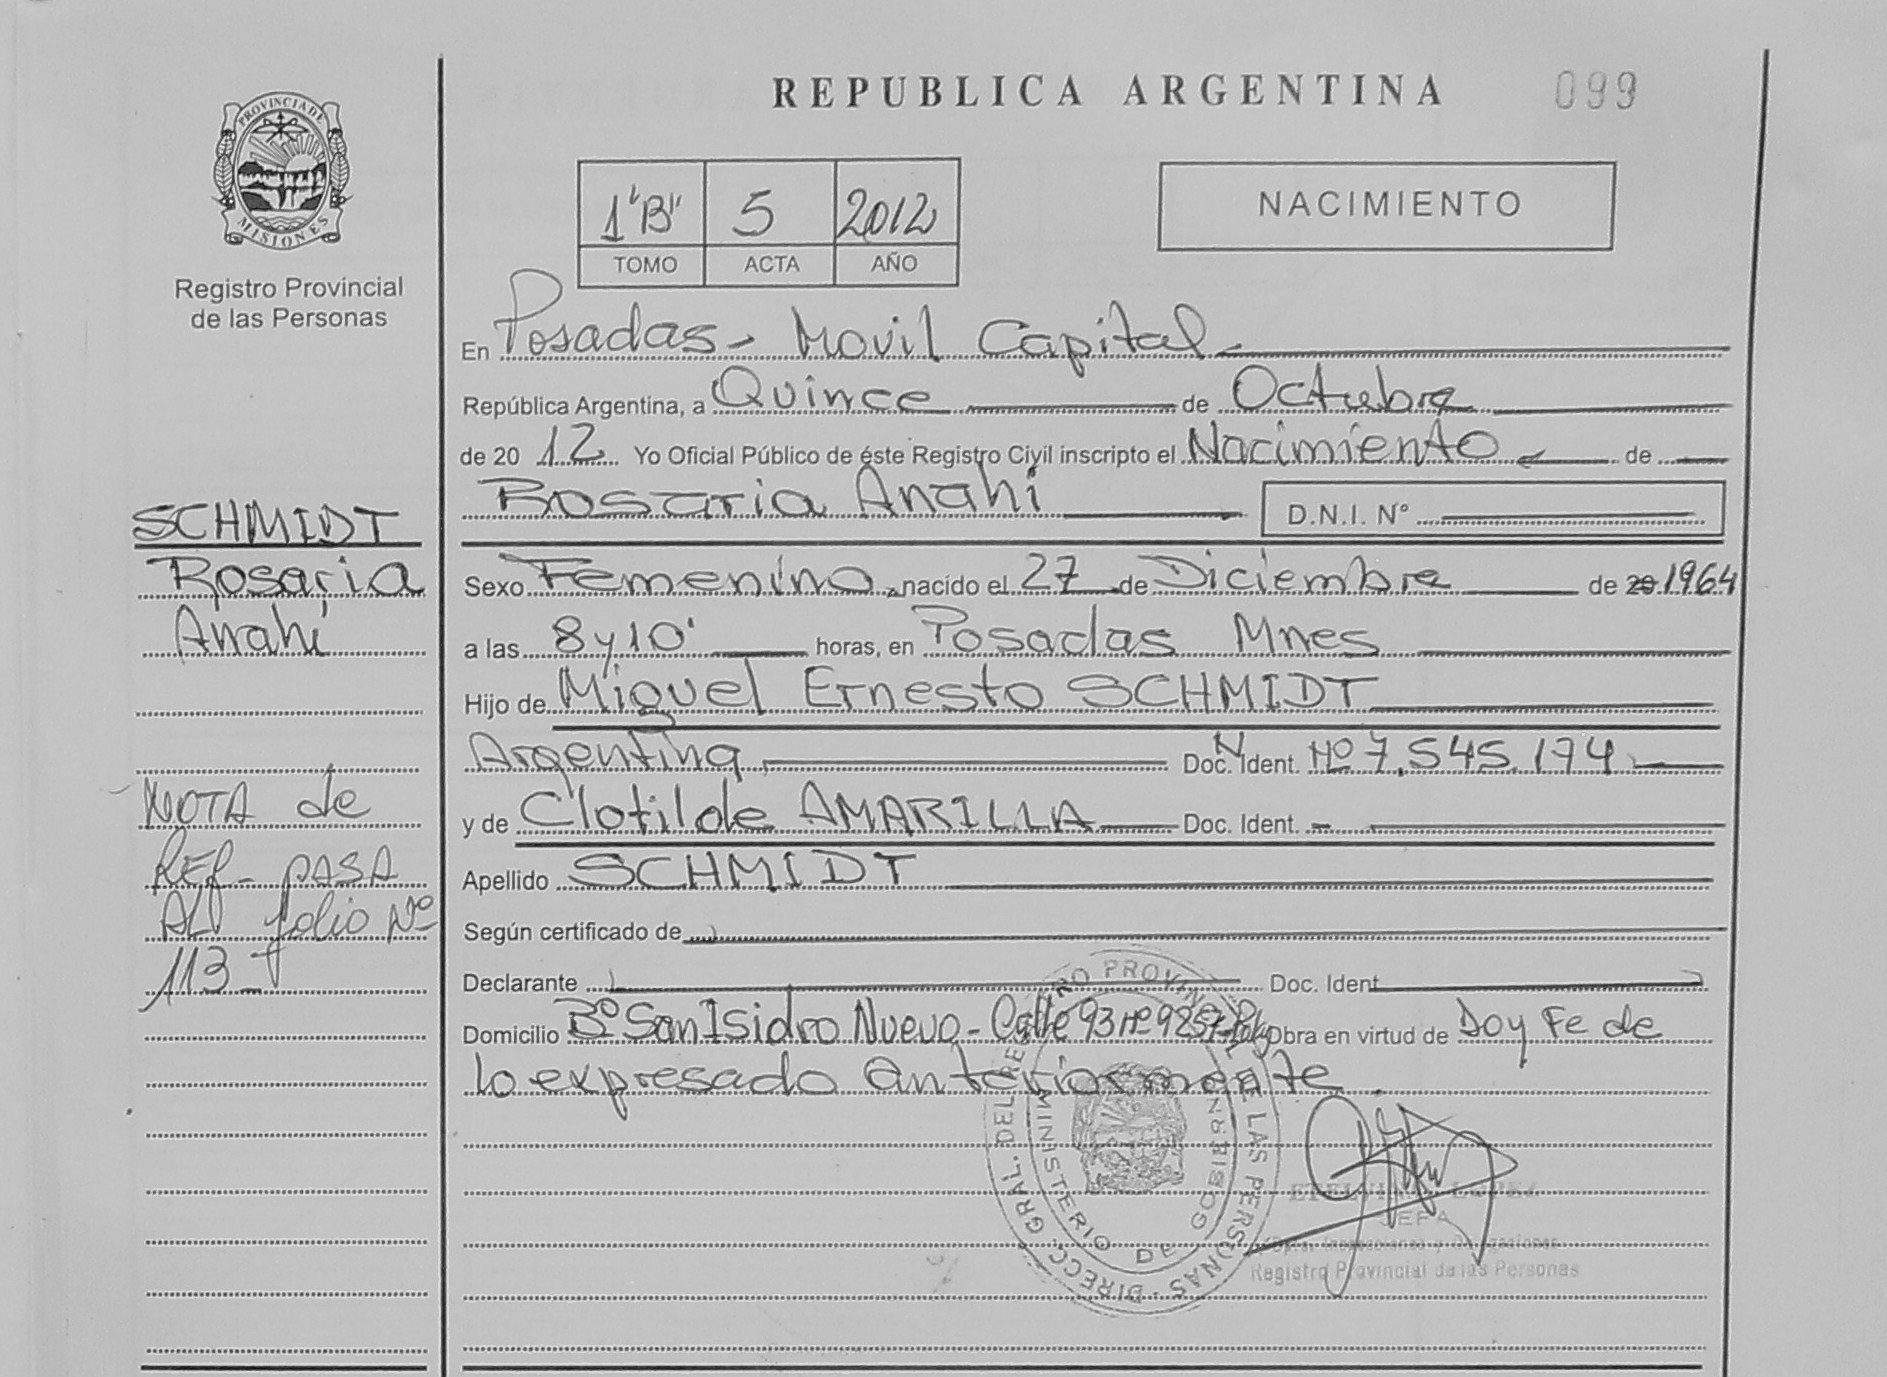 REPUBLICA ARGENTINA
099
PROVINCIA DE MISIONES
Registro Provincial
de las Personas
1 "B" 5 2012
TOMO ACTA AÑO
NACIMIENTO
En Posadas - Movil Capital -
República Argentina, a Quince de Octubre
de 20 12 Yo Oficial Público de éste Registro Civil inscripto el Nacimiento de
Rosaria Anahi D.N.I. Nº
SCHMIDT
Rosaria
Anahi
NOTA de
REF - PASA
AL folio Nº
113
Sexo Femenino nacido el 27 de Diciembre de 20 1964
a las 8 y 10' horas, en Posadas Mnes
Hijo de Miguel Ernesto SCHMIDT
Argentina Doc. Ident. Nº 7.545.174
y de Clotilde AMARILLA Doc. Ident. -
Apellido SCHMIDT
Según certificado de
Declarante Doc. Ident
Domicilio Bº San Isidro Nuevo - Calle 93 nº 9257 Obra en virtud de Doy Fe de
lo expresado anteriormente.
DIRECC. GRAL. DEL REGISTRO PROVINCIAL DE LAS PERSONAS
MINISTERIO DE GOBIERNO
LOPEZ
JEFA
Registro Provincial de las Personas